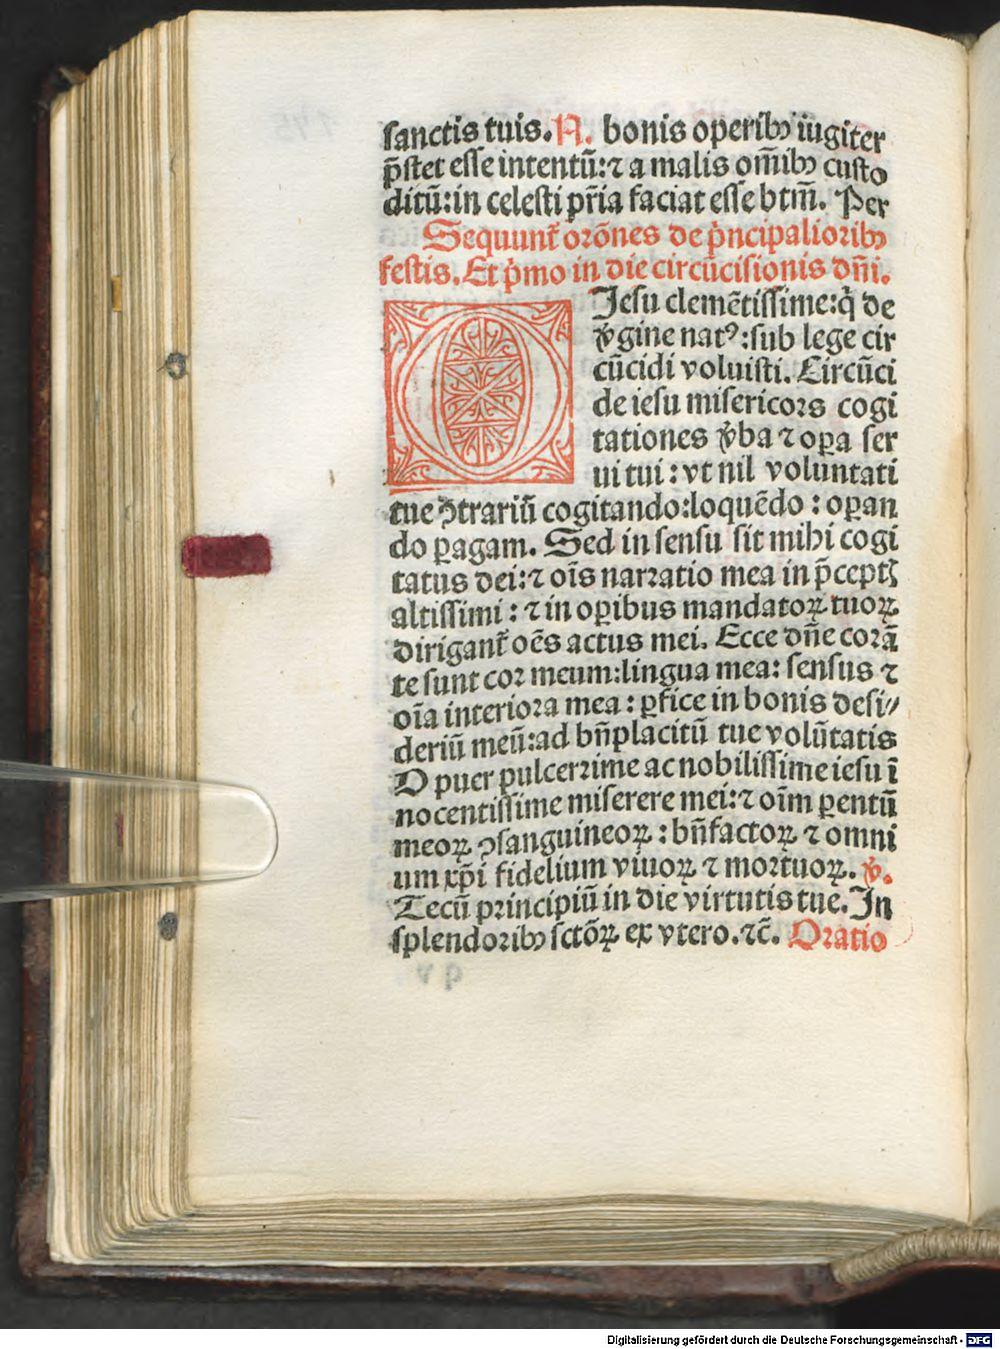 sanctis tuis. N. bonis operibꝫ iugiter
p̄stet esse intentū: ⁊ a malis om̄ibꝫ custo
ditū: in celesti pr̄ia faciat esse btm̄. Per
Sequunt᷑ orōnes de p̓ncipalioribꝫ
festis. Et p̓mo in die circūcisionis dn̄i.
O Jesu clemētissime: q̓ de
v̓gine natꝰ: sub lege cir
cūcidi voluisti. Circūci
de iesu misericors cogi
tationes v̓ba ⁊ oꝑa ser
ui tui: vt nil voluntati
tue ꝯtrariū cogitando: loquēdo: oꝑan
do ꝑagam. Sed in sensu sit mihi cogi
tatus dei: ⁊ oīs narratio mea in p̄ceptꝭ
altissimi: ⁊ in oꝑibus mandatoꝝ tuoꝝ
dirigant᷑ oēs actus mei. Ecce dn̄e corā
te sunt cor meum: lingua mea: sensus ⁊
oīa interiora mea: ꝑfice in bonis desi⸗
deriū meū: ad bn̄placitū tue volūtatis
O puer pulcerrime ac nobilissime iesu ī
nocentissime miserere mei: ⁊ oīm ꝑentū
meoꝝ ꝯsanguineoꝝ: bn̄factoꝝ ⁊ omni
um xp̄i fidelium viuoꝝ ⁊ mortuoꝝ. v̓.
Tecū principiū in die virtutis tue. In
splendoribꝫ sctōꝝ ex vtero. ⁊c̄. Oratio
Digitalisierung gefördert durch die Deutsche Forschungsgemeinschaft - DFG